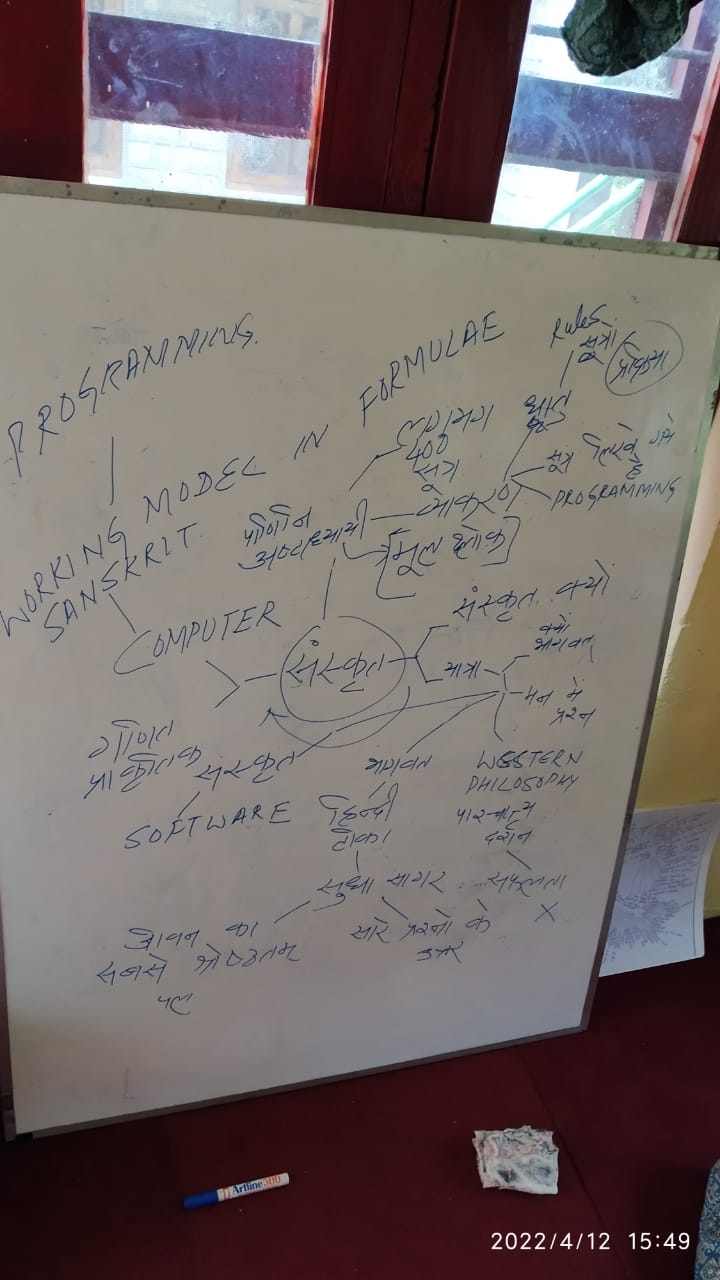 PROGRAMMING.
WORKING MODEL IN FORMULAE
SANSKRIT.
Rules.
सूत्रो
प्रक्रिया
लगभग
400
सूत्र
धातु
सूत्र
है
PROGRAMMING
पाणिनि
अष्टाध्यायी
व्याकरण
[मूल श्लोक]
COMPUTER
संस्कृत
संस्कृत क्यो
यात्रा
क्यो
भागवत
मन मे
प्रश्न
गणित
प्राकृतिक
संस्कृत
SOFTWARE
भागवत
हिन्दी
टीका
WESTERN
PHILOSOPHY
पाश्चात्य
दर्शन
सुधा सागर
सफलता
X
जीवन का
सबसे श्रेष्ठतम
पल
सारे प्रश्नो के
उत्तर
Artline 500
2022/4/12 15:49